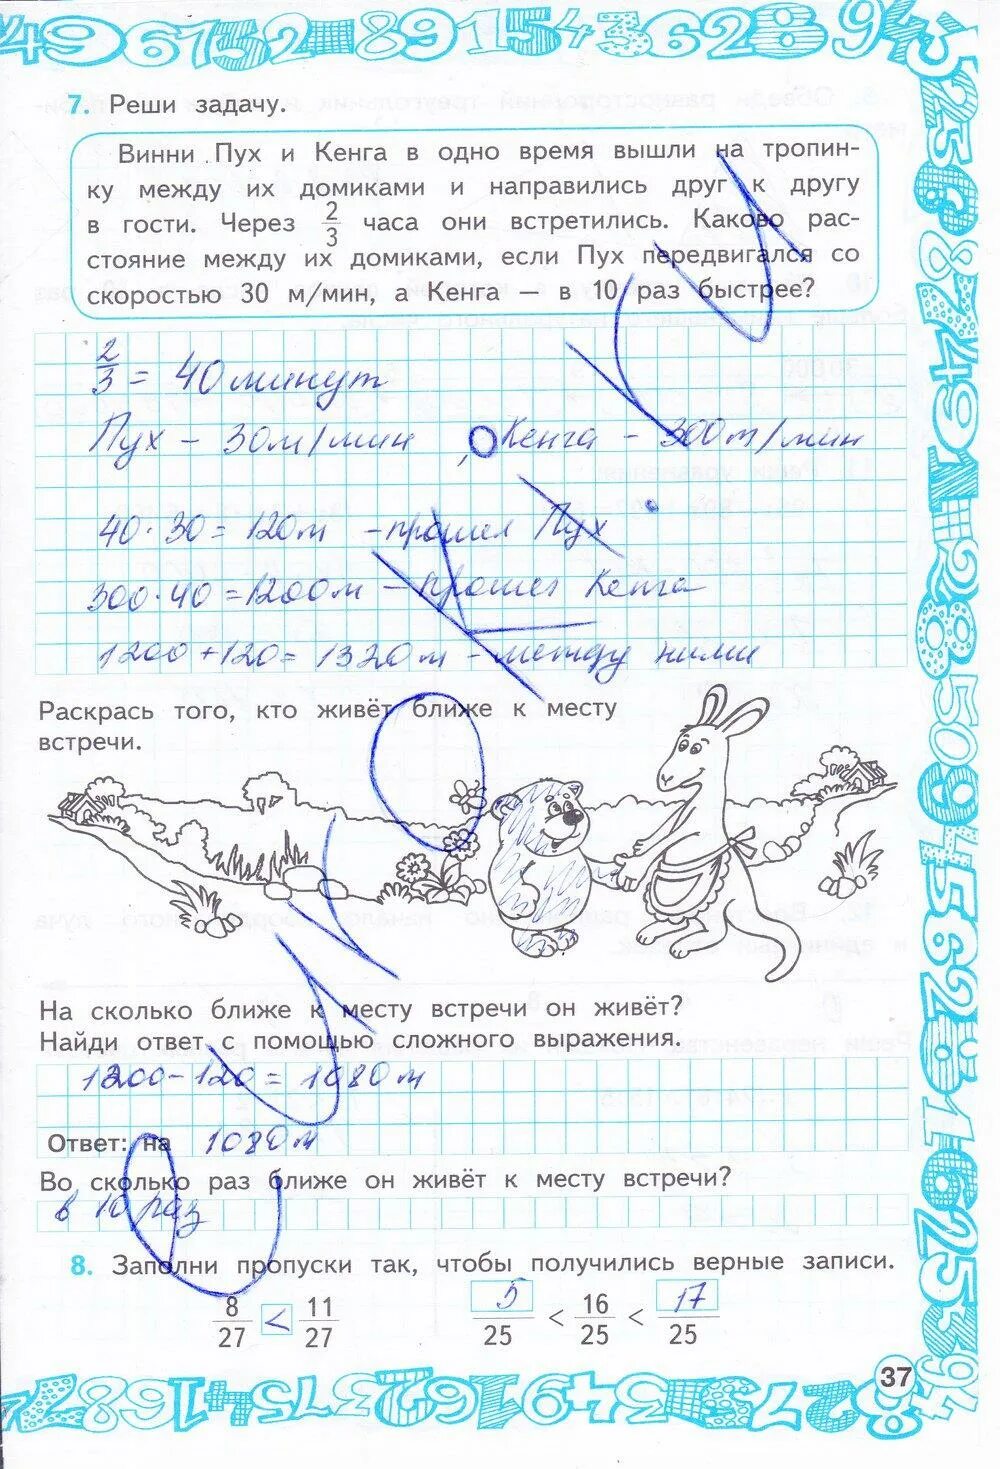 7. Реши задачу.
Винни Пух и Кенга в одно время вышли на тропин-
ку между их домиками и направились друг к другу
в гости. Через 2/3 часа они встретились. Каково рас-
стояние между их домиками, если Пух передвигался со
скоростью 30 м/мин, а Кенга — в 10 раз быстрее?
2/3 = 40 минут
Пух - 30м/мин , Кенга - 300м/мин
40·30=120м - прошел Пух
300·40=1200м - прошел Кенга
1200+120=1320м - между ними
Раскрась того, кто живёт ближе к месту
встречи.
На сколько ближе к месту встречи он живёт?
Найди ответ с помощью сложного выражения.
1200-120=1080м
Ответ: на 1080м
Во сколько раз ближе он живёт к месту встречи?
в 10 раз
8. Заполни пропуски так, чтобы получились верные записи.
8/27 < 11/27 5/25 < 16/25 < 17/25
37